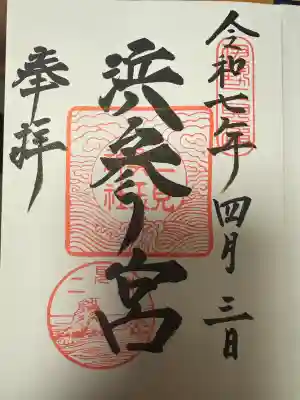 令和七年 四月 三日
浜参宮
奉拝